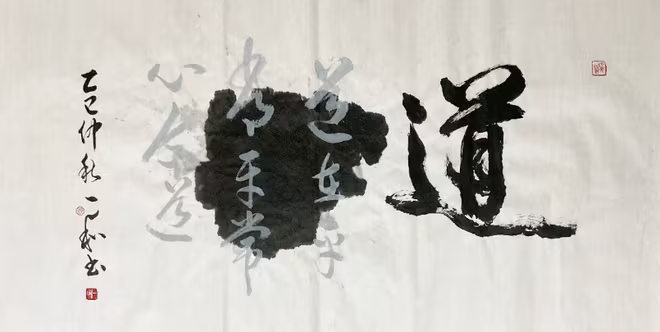 道
道在平
常平常
心合道
乙巳仲秋一书